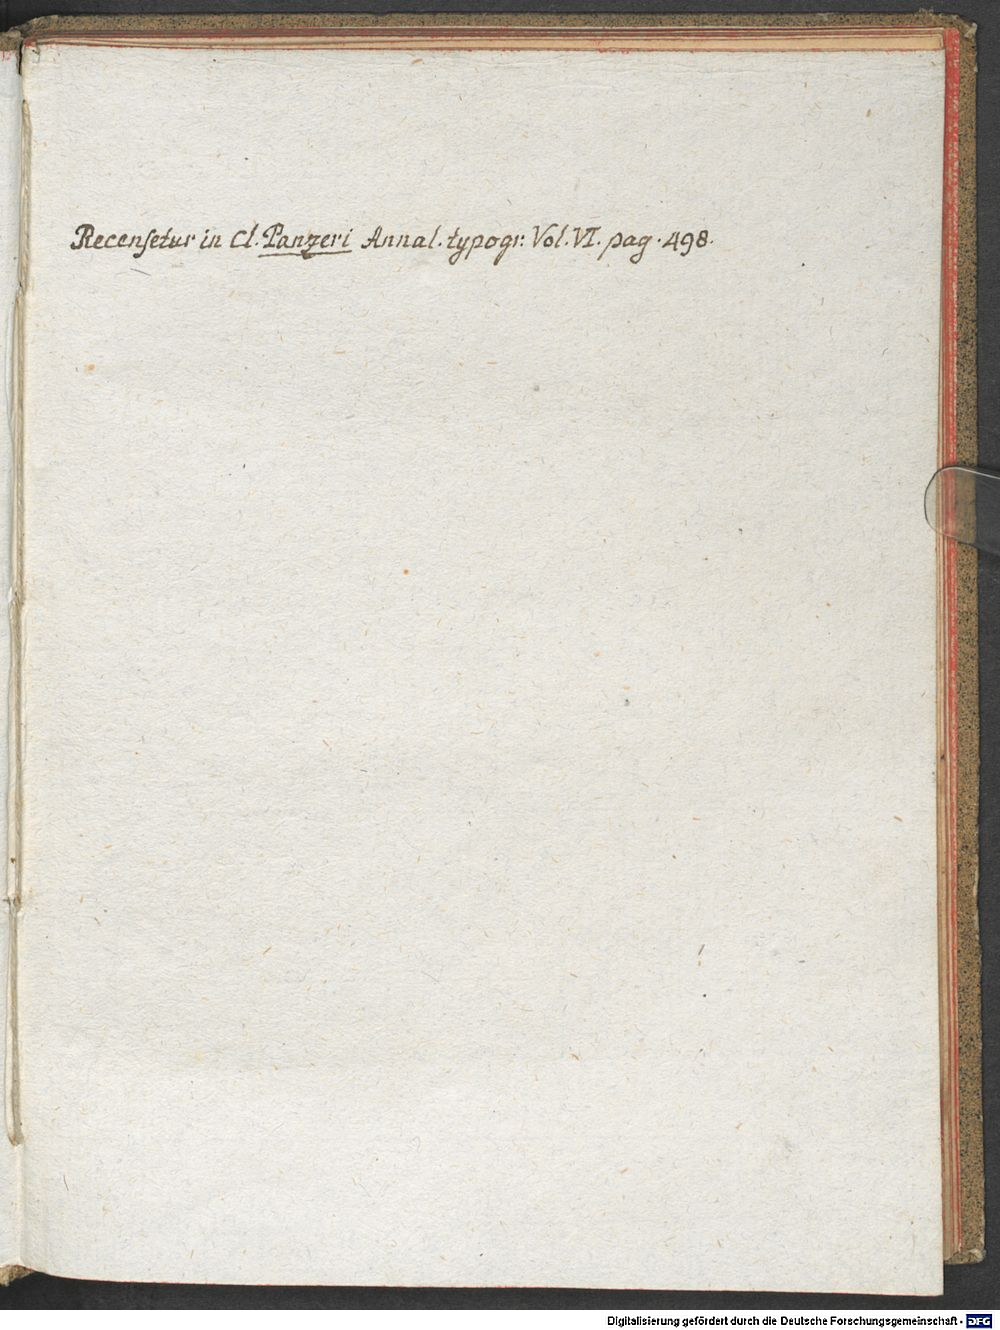 Recensetur in Cl. Panzeri Annal. typogr. Vol. VI. pag. 498.
Digitalisierung gefördert durch die Deutsche Forschungsgemeinschaft - DFG